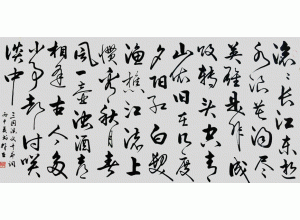 滚滚长江东逝
水浪花淘尽
英雄是非成
败转头空青
山依旧在几度
夕阳红白发
渔樵江渚上
惯看秋月春
风一壶浊酒喜
相逢古今多
少事都付笑
谈中
三国演义
丙申夏